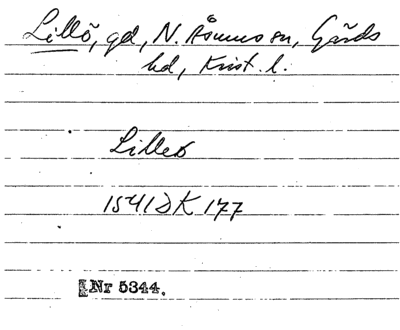 Lillö, gd, N. Åsums sn, Gärds
hd, Krist. l.
Lilleö
1541 DK 177
Nr 5344.